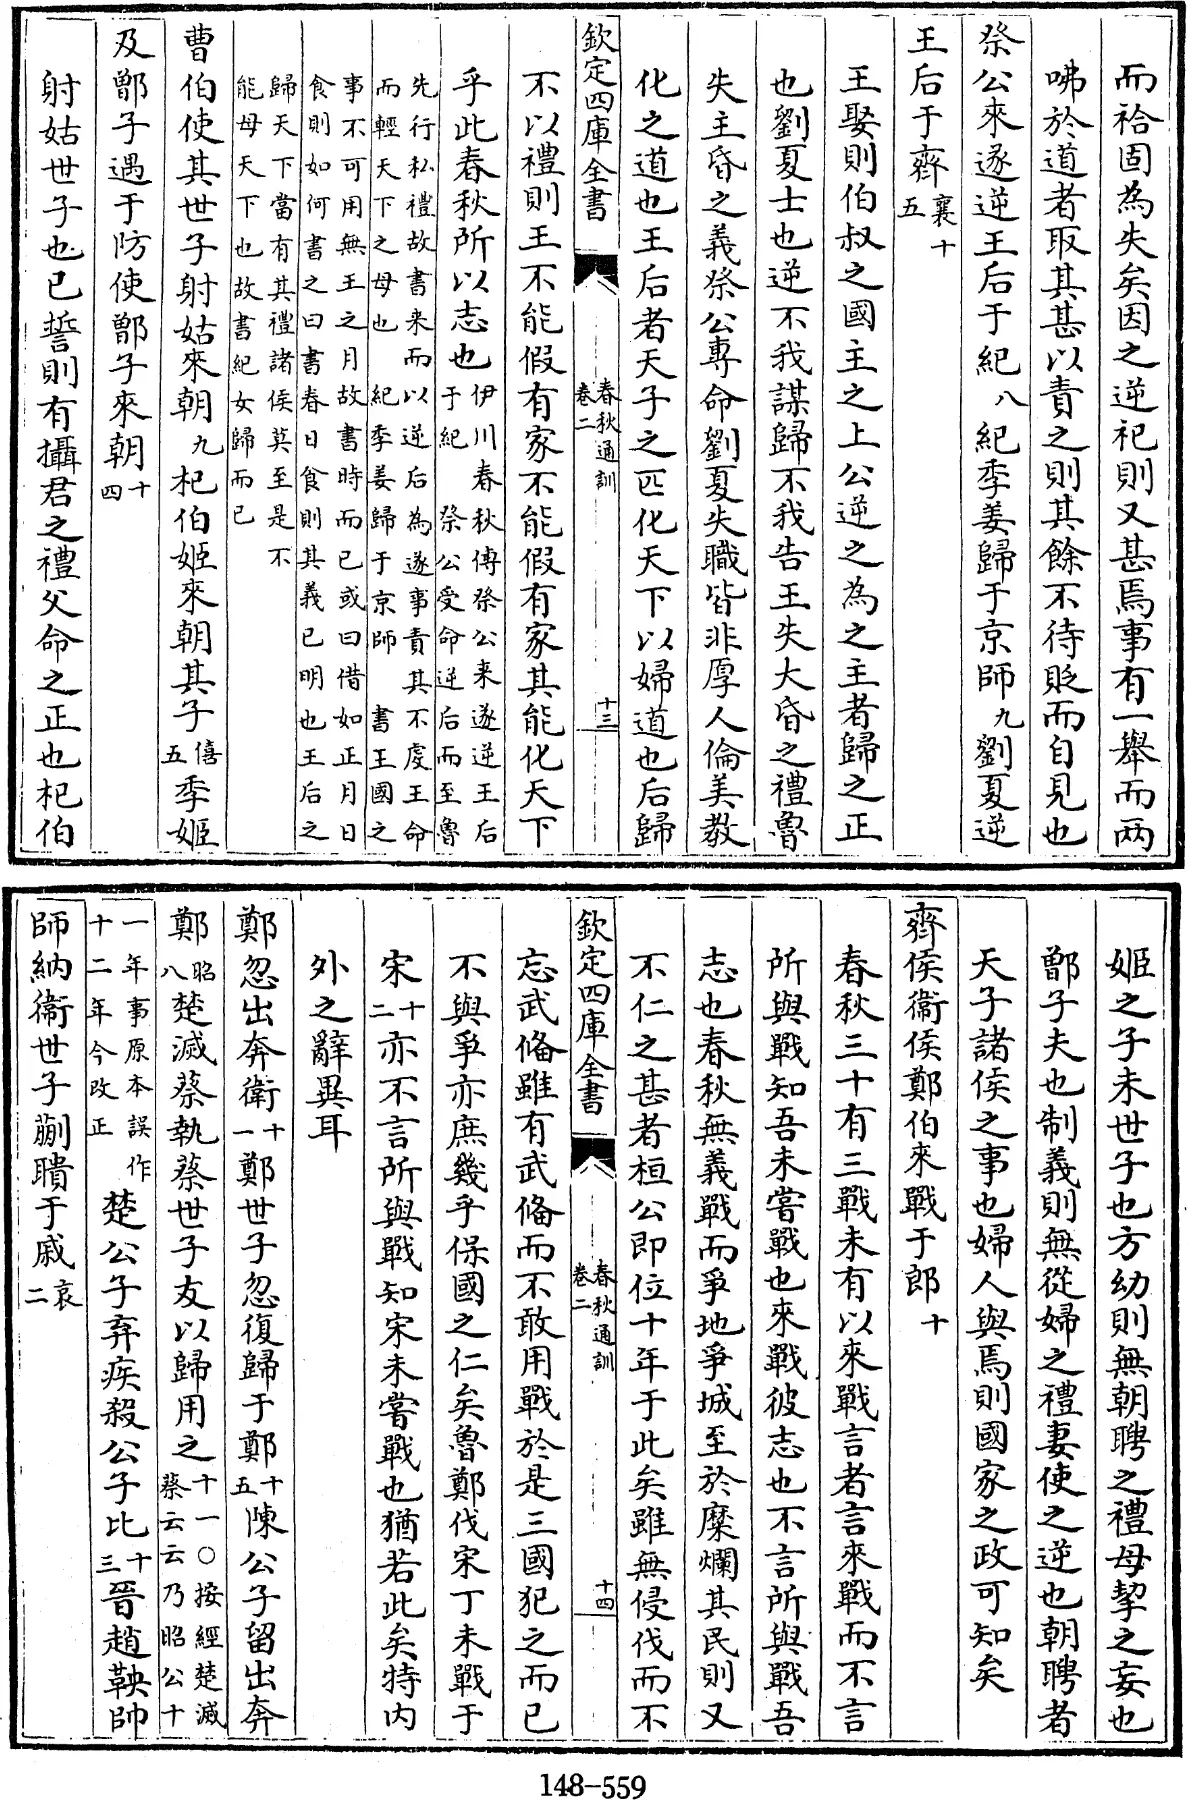 而祫固為失矣因之逆祀則又甚焉事有一舉而兩
咈於道者取其甚以責之則其餘不待貶而自見也
祭公來遂逆王后于紀八紀季姜歸于京師九劉夏逆
王后于齊襄十五
王娶則伯叔之國主之上公逆之為之主者歸之正
也劉夏士也逆不我謀歸不我告王失大昏之禮魯
失主昏之義祭公專命劉夏失職皆非厚人倫美教
化之道也王后者天子之匹化天下以婦道也后歸
欽定四庫全書
春秋通訓
卷二
十三
不以禮則王不能假有家不能假有家其能化天下
乎此春秋所以志也伊川春秋傳祭公来遂逆王后
于紀祭公受命逆后而至魯
先行私禮故書来而以逆后為遂事責其不虔王命
而輕天下之母也紀季姜歸于京師書王國之
事不可用無王之月故書時而已或曰借如正月日
食則如何書之曰書春日食則其義已明也王后之
歸天下當有其禮諸侯莫至是不
能母天下也故書紀女歸而已
曹伯使其世子射姑來朝九杞伯姬來朝其子僖五季姬
及鄫子遇于防使鄫子來朝十四
射姑世子也已誓則有攝君之禮父命之正也杞伯
姬之子未世子也方幼則無朝聘之禮母挈之妄也
鄫子夫也制義則無從婦之禮妻使之逆也朝聘者
天子諸侯之事也婦人與焉則國家之政可知矣
齊侯衞侯鄭伯來戰于郎十
春秋三十有三戰未有以來戰言者言來戰而不言
所與戰知吾未嘗戰也來戰彼志也不言所與戰吾
志也春秋無義戰而爭地爭城至於糜爛其民則又
不仁之甚者桓公即位十年于此矣雖無侵伐而不
欽定四庫全書
春秋通訓
卷二
十四
忘武備雖有武備而不敢用戰於是三國犯之而已
不與爭亦庶幾乎保國之仁矣魯鄭伐宋丁未戰于
宋十二亦不言所與戰知宋未嘗戰也猶若此矣特内
外之辭異耳
鄭忽出奔衛十一鄭世子忽復歸于鄭十五陳公子留出奔
鄭昭八楚滅蔡執蔡世子友以歸用之十一○按經楚滅
蔡云云乃昭公十
一年事原本誤作
十二年今改正楚公子弃疾殺公子比十三晉趙鞅帥
師納衞世子蒯聵于戚哀二
148-559